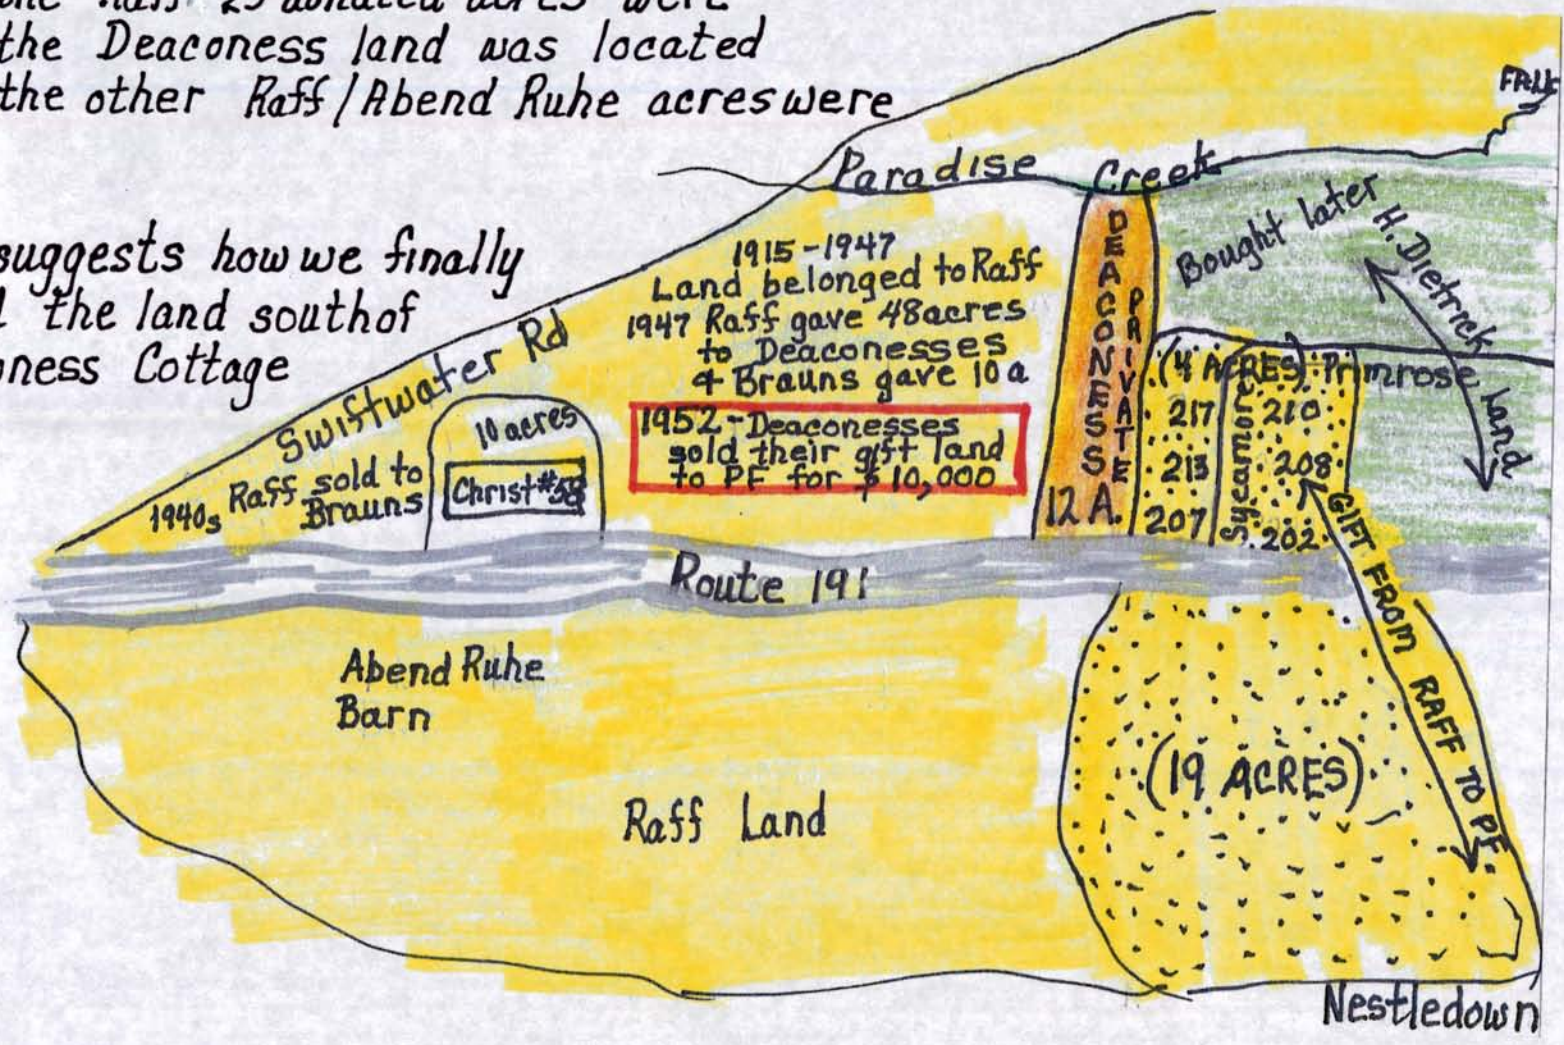 the Raff 23 donated acres were
the Deaconess land was located
the other Raff/Abend Ruhe acres were
suggests how we finally
the land south of
Cottage
FALLS
Paradise Creek
Swiftwater Rd
1915-1947
Land belonged to Raff
1947 Raff gave 48 acres
to Deaconesses
& Brauns gave 10 a
1952-Deaconesses
sold their gift land
to PF for $10,000
10 acres
Christ #58
1940s Raff sold to
Brauns
DEACONESS
PRIVATE
12 A.
Bought later
H. Dietrick
Land
(4 ACRES) Primrose
217
213
207
Sycamore
210
208
202
GIFT FROM RAFF TO PF.
Route 191
Abend Ruhe
Barn
Raff Land
(19 ACRES)
Nestledown